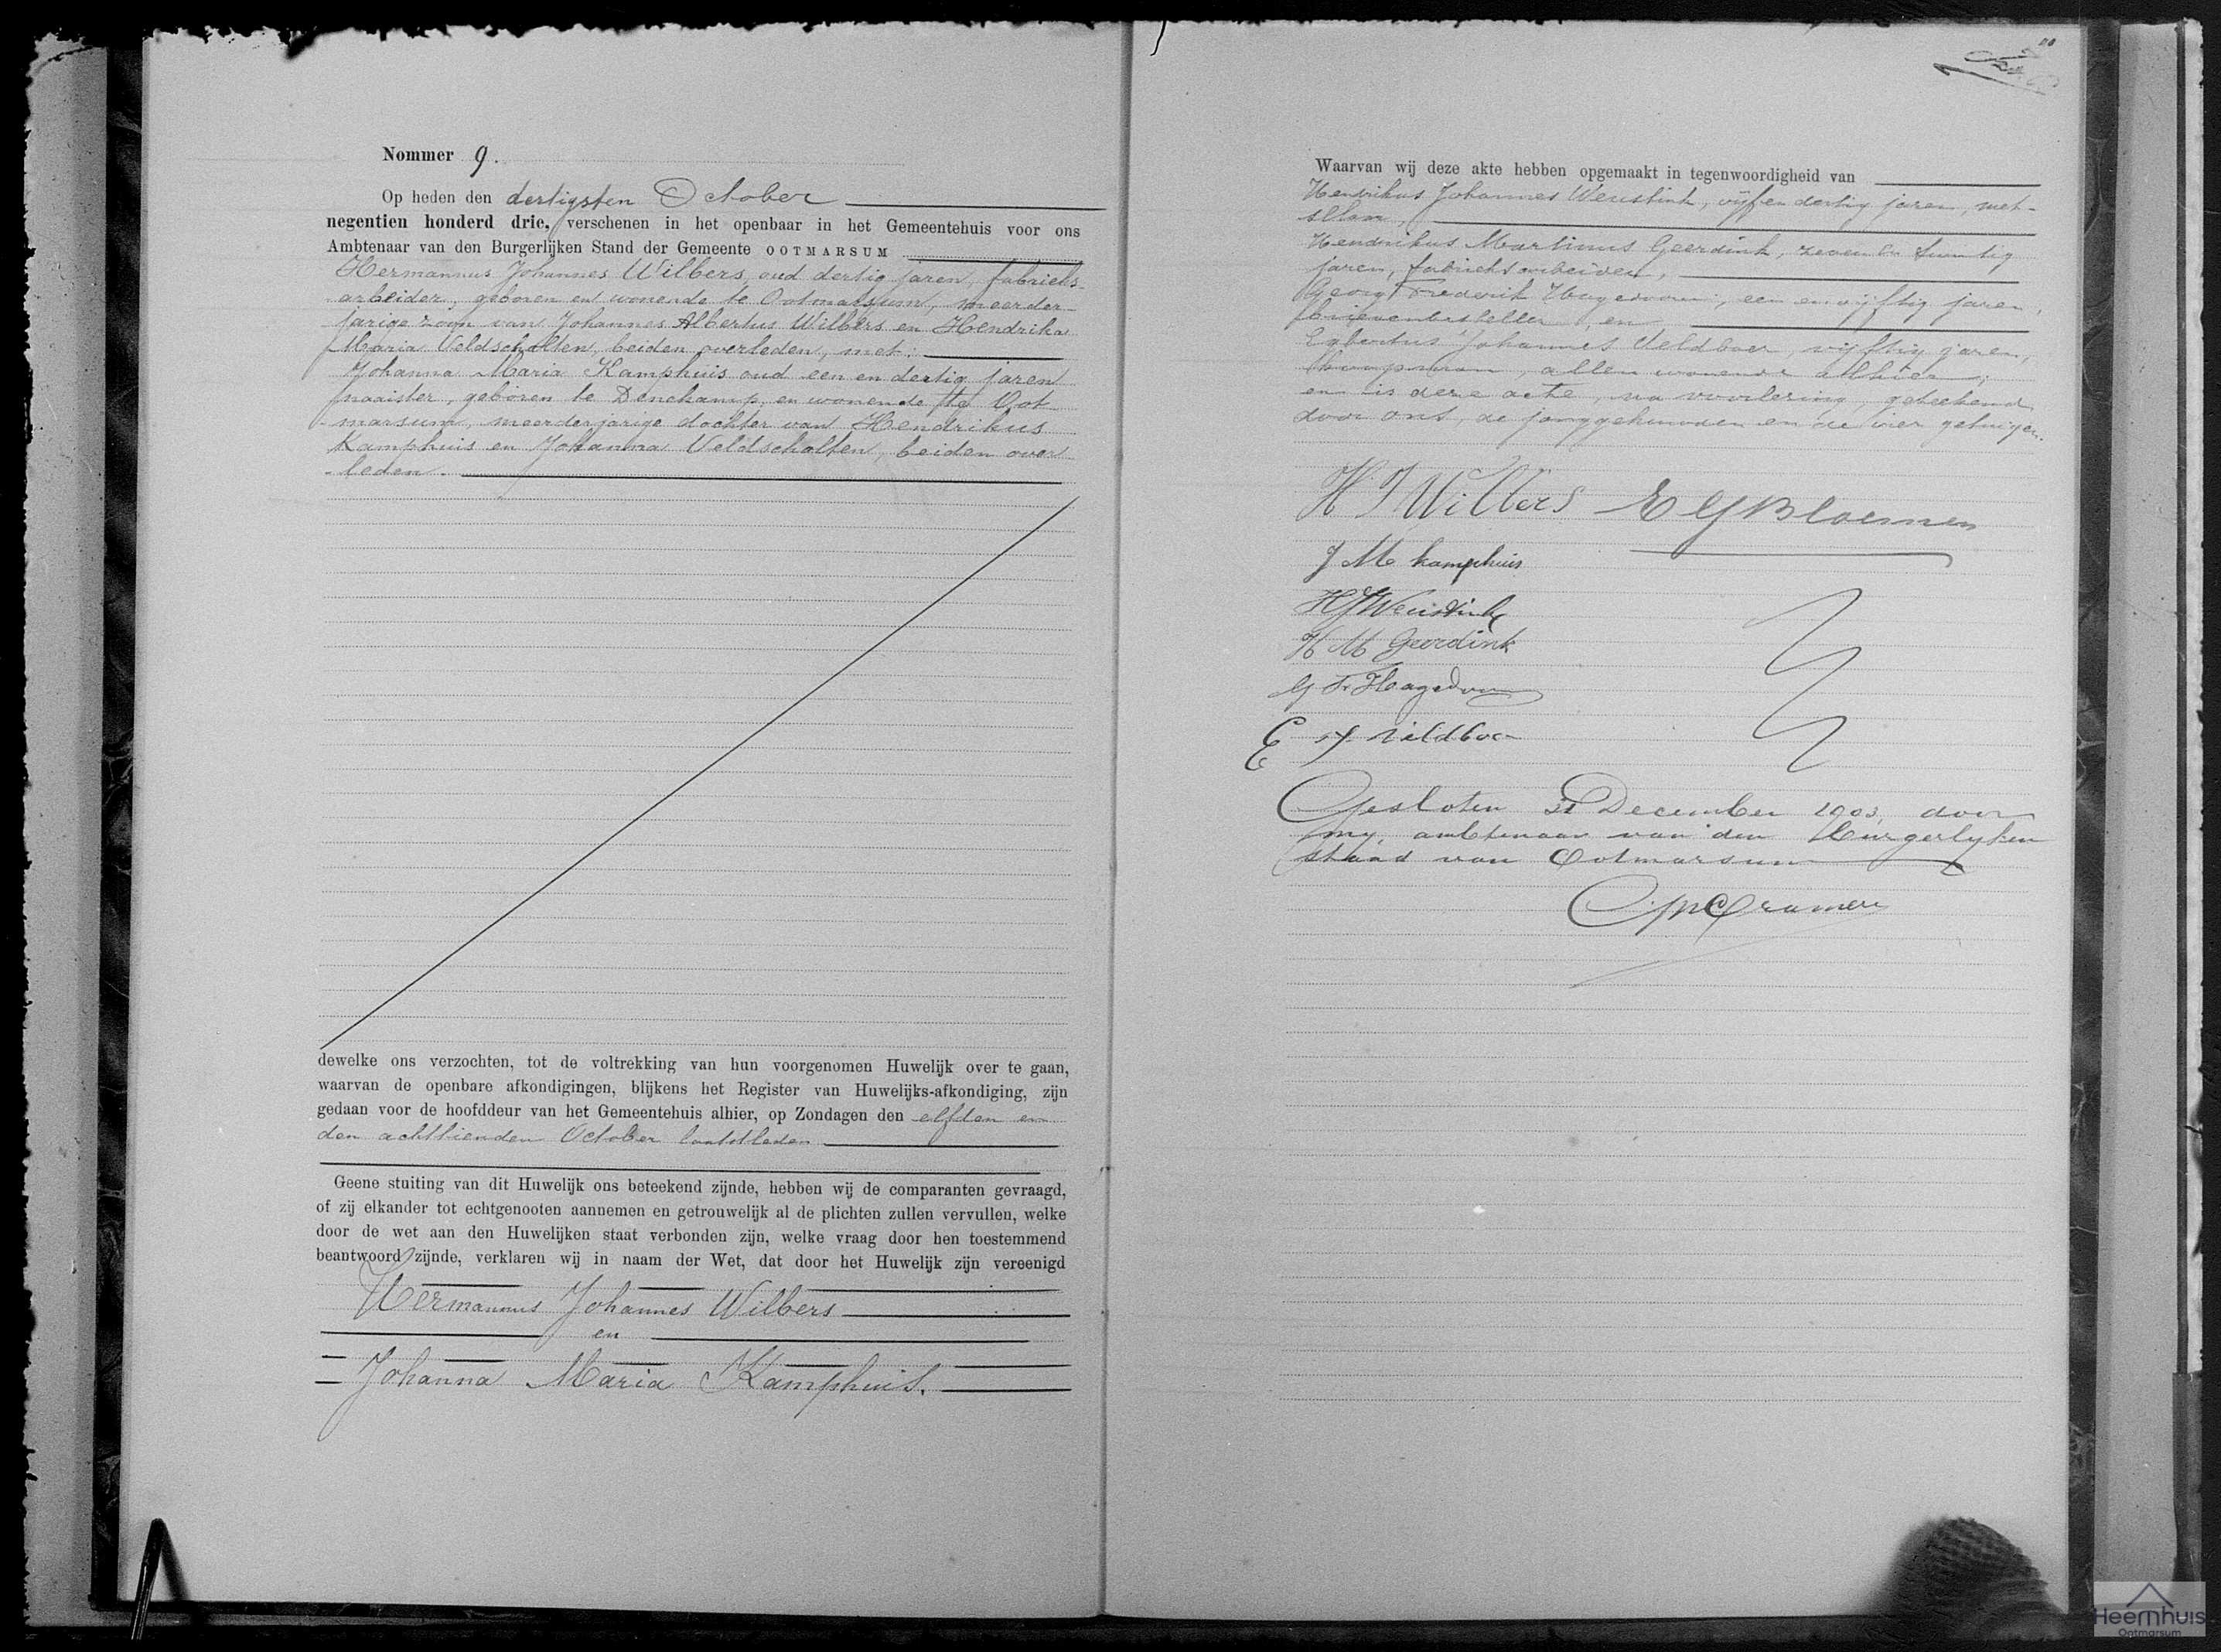 Nommer 9.
Op heden den dertigsten October
negentien honderd drie, verschenen in het openbaar in het Gemeentehuis voor ons
Ambtenaar van den Burgerlijken Stand der Gemeente OOTMARSUM
Hermannus Johannes Wilbers, oud dertig jaren, fabrieks-
arbeider, geboren en wonende te Ootmarsum, meerder-
jarige zoon van Johannes Albertus Wilbers en Hendrika
Maria Veldscholten, beiden overleden, met:
Johanna Maria Kamphuis oud een en dertig jaren
naaister, geboren te Denekamp, en wonende te Oot-
marsum, meerderjarige dochter van Hendrikus
Kamphuis en Johanna Veldscholten, beiden over-
leden.
dewelke ons verzochten, tot de voltrekking van hun voorgenomen Huwelijk over te gaan,
waarvan de openbare afkondigingen, blijkens het Register van Huwelijks-afkondiging, zijn
gedaan voor de hoofddeur van het Gemeentehuis alhier, op Zondagen den elfden en
den achttienden October laatstleden
Geene stuiting van dit Huwelijk ons beteekend zijnde, hebben wij de comparanten gevraagd,
of zij elkander tot echtgenooten aannemen en getrouwelijk al de plichten zullen vervullen, welke
door de wet aan den Huwelijken staat verbonden zijn, welke vraag door hen toestemmend
beantwoord zijnde, verklaren wij in naam der Wet, dat door het Huwelijk zijn vereenigd
Hermannus Johannes Wilbers
en
Johanna Maria Kamphuis.
Waarvan wij deze akte hebben opgemaakt in tegenwoordigheid van
Hendrikus Johannes Weustink, vijf en dertig jaren, met-
selaar,
Hendrikus Martinus Geerdink, zeven en twintig
jaren, fabrieksarbeider,
Georg Frederik Hagedoorn, een en vijftig jaren,
brievenbesteller, en
Egbertus Johannes Veldboer, vijftig jaren,
koopman, allen wonende alhier;
en is deze acte, na voorlezing, geteekend
door ons, de jonggehuwden en de vier getuigen.
H J Wilbers E G Bloemen
J M kamphuis
H J Weustink
H M Geerdink
G Fr Hagedoorn
E J. Veldboer
Gesloten 31 December 1903, door
mij, ambtenaar van den Burgerlyken
stand van Ootmarsum
Cramer
Heernhuis
Ootmarsum